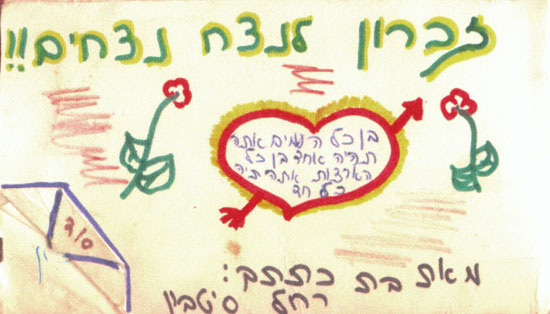 זכרון לנצח נצחים!!
בן כל הימים אתה
תהיה אחד בן כל
הארצות אתה תיה
כל חד
סוד
מאת בת כתתך:
רחל סיטבין